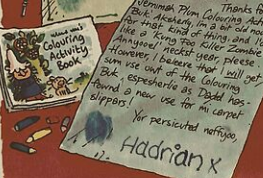 Thanks fo
Vermimah Plum Colouring Activ
Buk' Akcherly, I'm a bit old now
for that kind of thing, and I'd
like a 'Kung Foo Killer Zombie
Annyooel' nectst year, pleese.
However, I beleeve that I will get
sum use out of the Colouring
Buk, espesherlie as Dadd has
found a new use for mi carpet
slippers!
Yor persicuted neffyoo,
Hadrian x
Colouring
Activity
Book